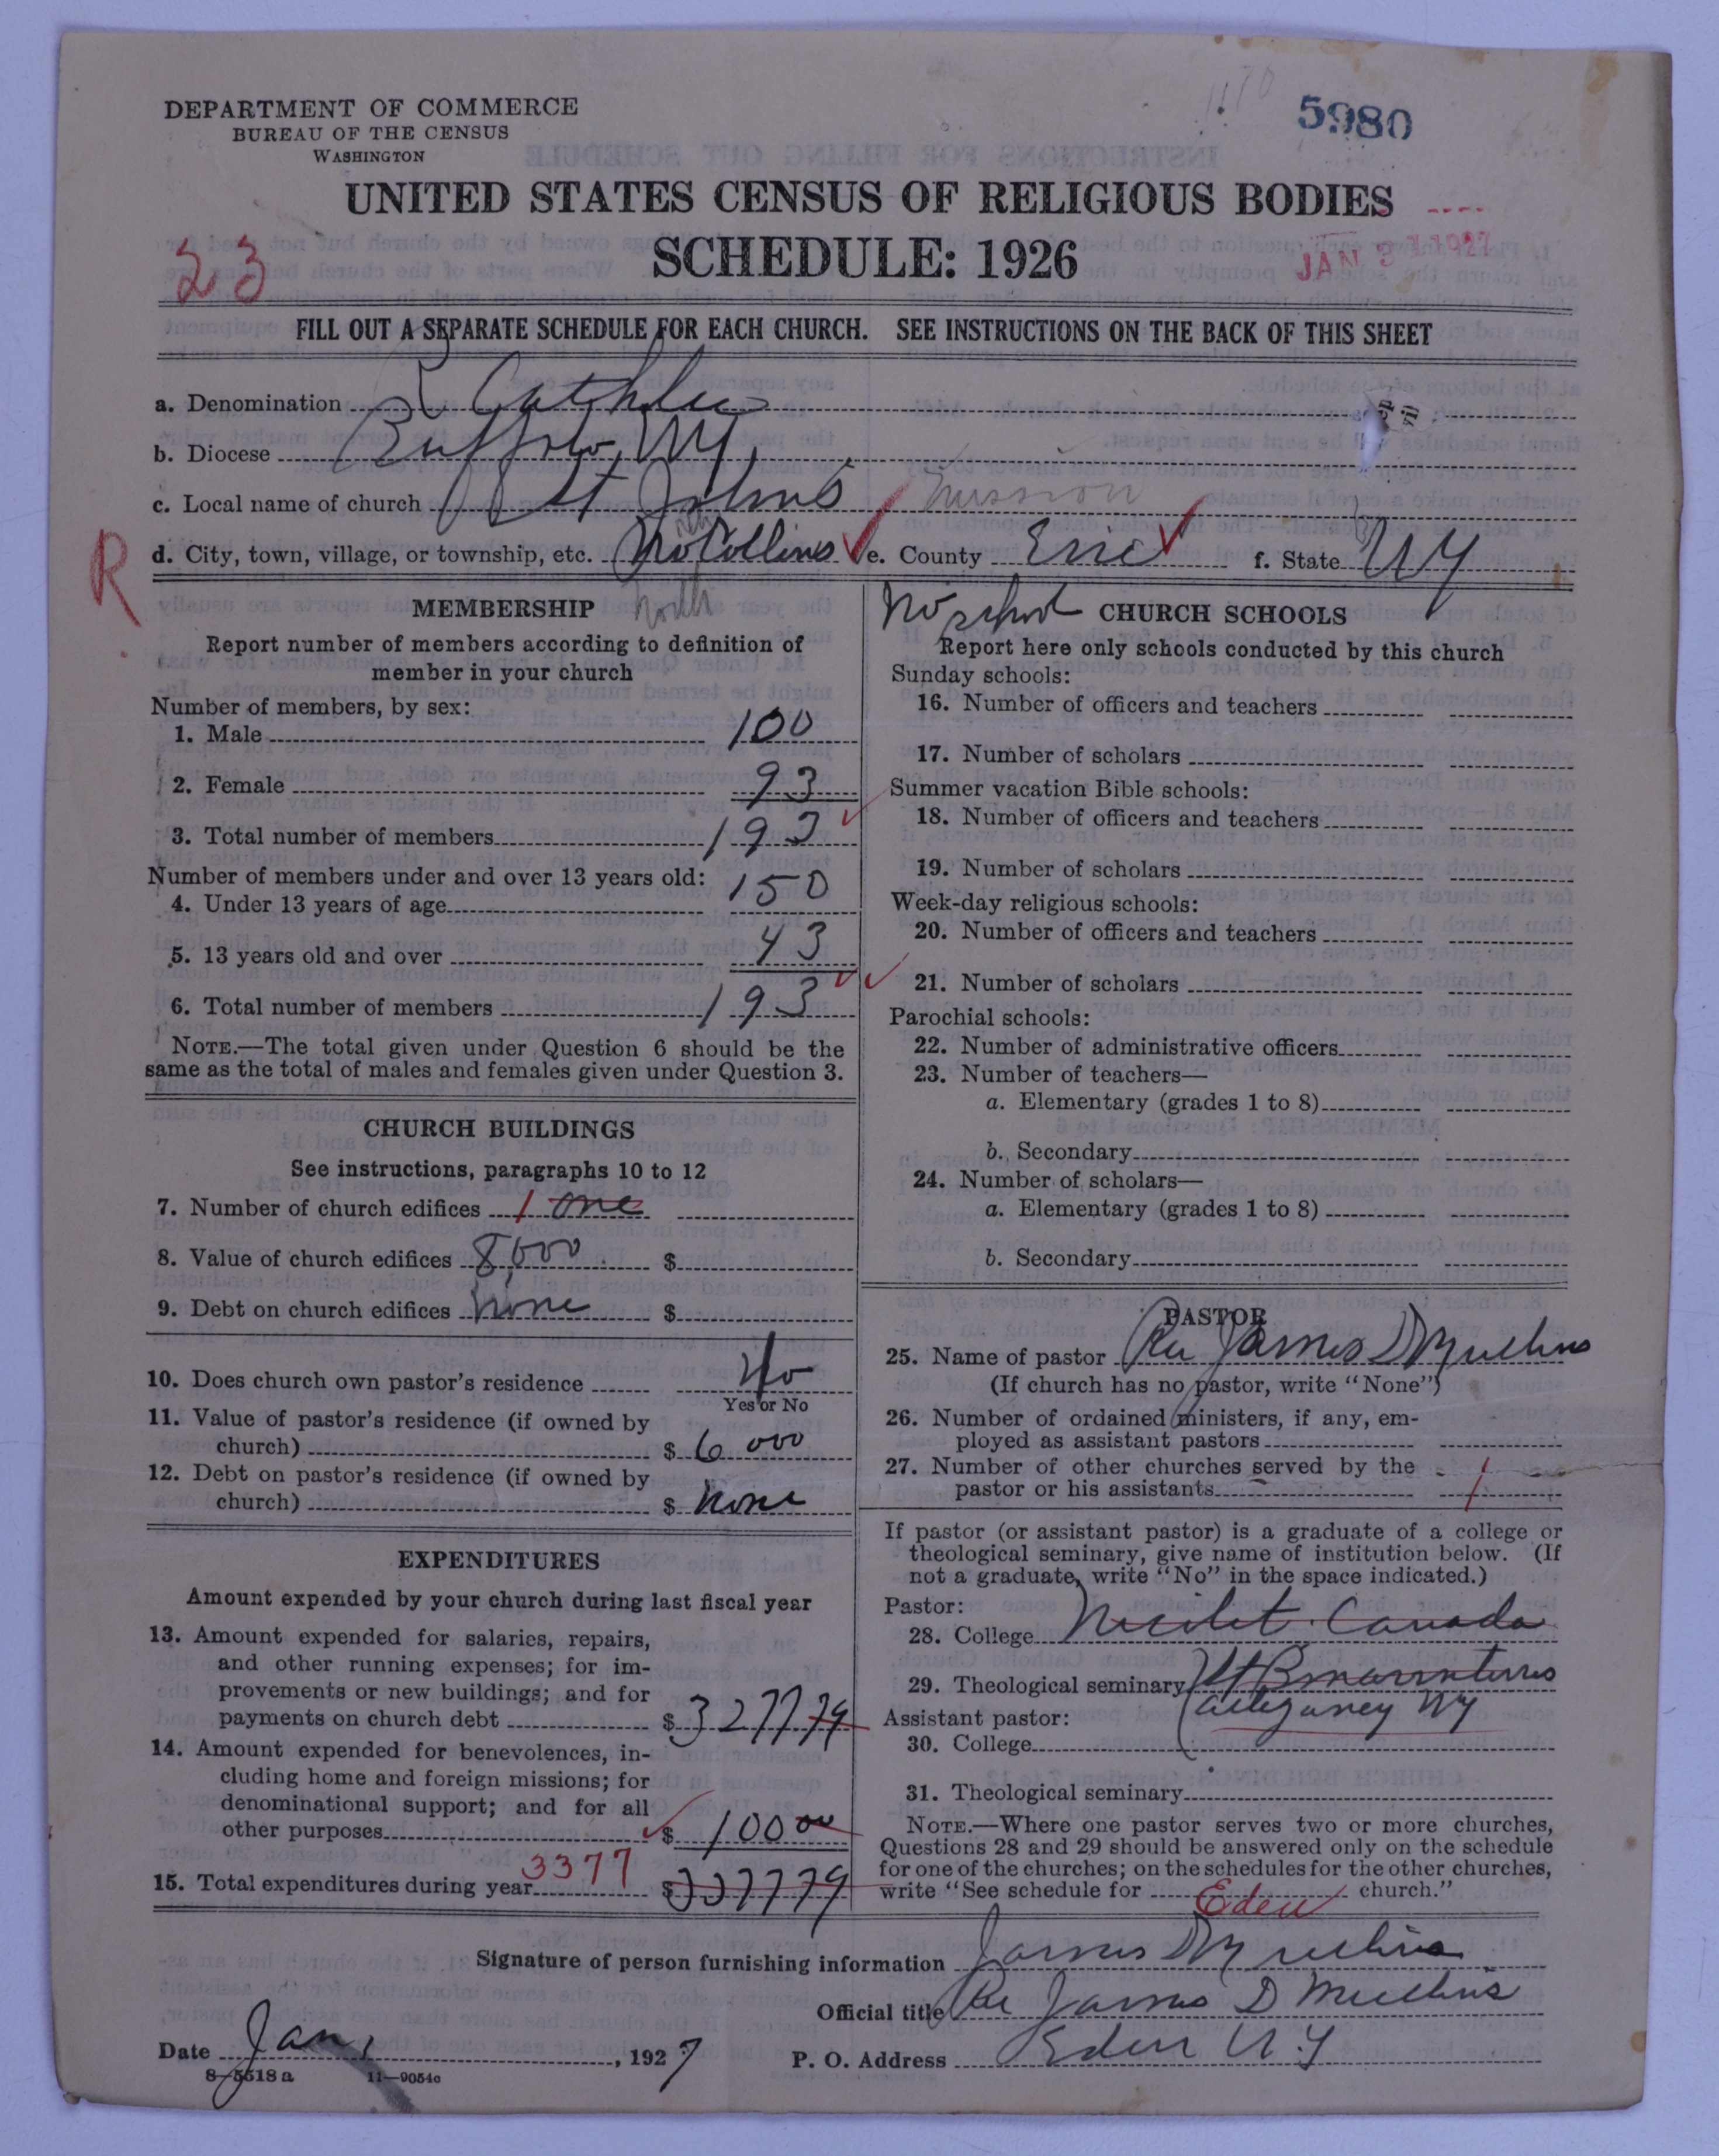 DEPARTMENT OF COMMERCE
BUREAU OF THE CENSUS
WASHINGTON
5980
UNITED STATES CENSUS OF RELIGIOUS BODIES
SCHEDULE: 1926
23
JAN 31 1927
FILL OUT A SEPARATE SCHEDULE FOR EACH CHURCH. SEE INSTRUCTIONS ON THE BACK OF THIS SHEET
a. Denomination R Catholic
b. Diocese Buffalo, NY,
c. Local name of church St Johns Mission
d. City, town, village, or township, etc. No Collins e. County Erie f. State NY
R
MEMBERSHIP North
Report number of members according to definition of
member in your church
Number of members, by sex:
1. Male 100
2. Female 93
3. Total number of members 193
Number of members under and over 13 years old:
4. Under 13 years of age 150
5. 13 years old and over 43
6. Total number of members 193
NOTE.—The total given under Question 6 should be the
same as the total of males and females given under Question 3.
CHURCH BUILDINGS
See instructions, paragraphs 10 to 12
7. Number of church edifices 1 one
8. Value of church edifices 8,000 $
9. Debt on church edifices none $
10. Does church own pastor's residence No
Yes or No
11. Value of pastor's residence (if owned by
church) $ 6 000
12. Debt on pastor's residence (if owned by
church) $ none
EXPENDITURES
Amount expended by your church during last fiscal year
13. Amount expended for salaries, repairs,
and other running expenses; for im-
provements or new buildings; and for
payments on church debt $ 3277 79
14. Amount expended for benevolences, in-
cluding home and foreign missions; for
denominational support; and for all
other purposes $ 100 00
3377
15. Total expenditures during year $ 3377 79
No school CHURCH SCHOOLS
Report here only schools conducted by this church
Sunday schools:
16. Number of officers and teachers
17. Number of scholars
Summer vacation Bible schools:
18. Number of officers and teachers
19. Number of scholars
Week-day religious schools:
20. Number of officers and teachers
21. Number of scholars
Parochial schools:
22. Number of administrative officers
23. Number of teachers—
a. Elementary (grades 1 to 8)
b. Secondary
24. Number of scholars—
a. Elementary (grades 1 to 8)
b. Secondary
PASTOR
25. Name of pastor Rev James D Mullins
(If church has no pastor, write "None")
26. Number of ordained ministers, if any, em-
ployed as assistant pastors
27. Number of other churches served by the
pastor or his assistants 1
If pastor (or assistant pastor) is a graduate of a college or
theological seminary, give name of institution below. (If
not a graduate, write "No" in the space indicated.)
Pastor:
28. College Nicolet Canada
29. Theological seminary St Bonaventures
Allegany NY
Assistant pastor:
30. College
31. Theological seminary
NOTE.—Where one pastor serves two or more churches,
Questions 28 and 29 should be answered only on the schedule
for one of the churches; on the schedules for the other churches,
write "See schedule for Eden church."
Signature of person furnishing information James D Mullins
Official title Rev James D Mullins
Date Jan, 1927 P. O. Address Eden N.Y
8—5518 a 11—9054c